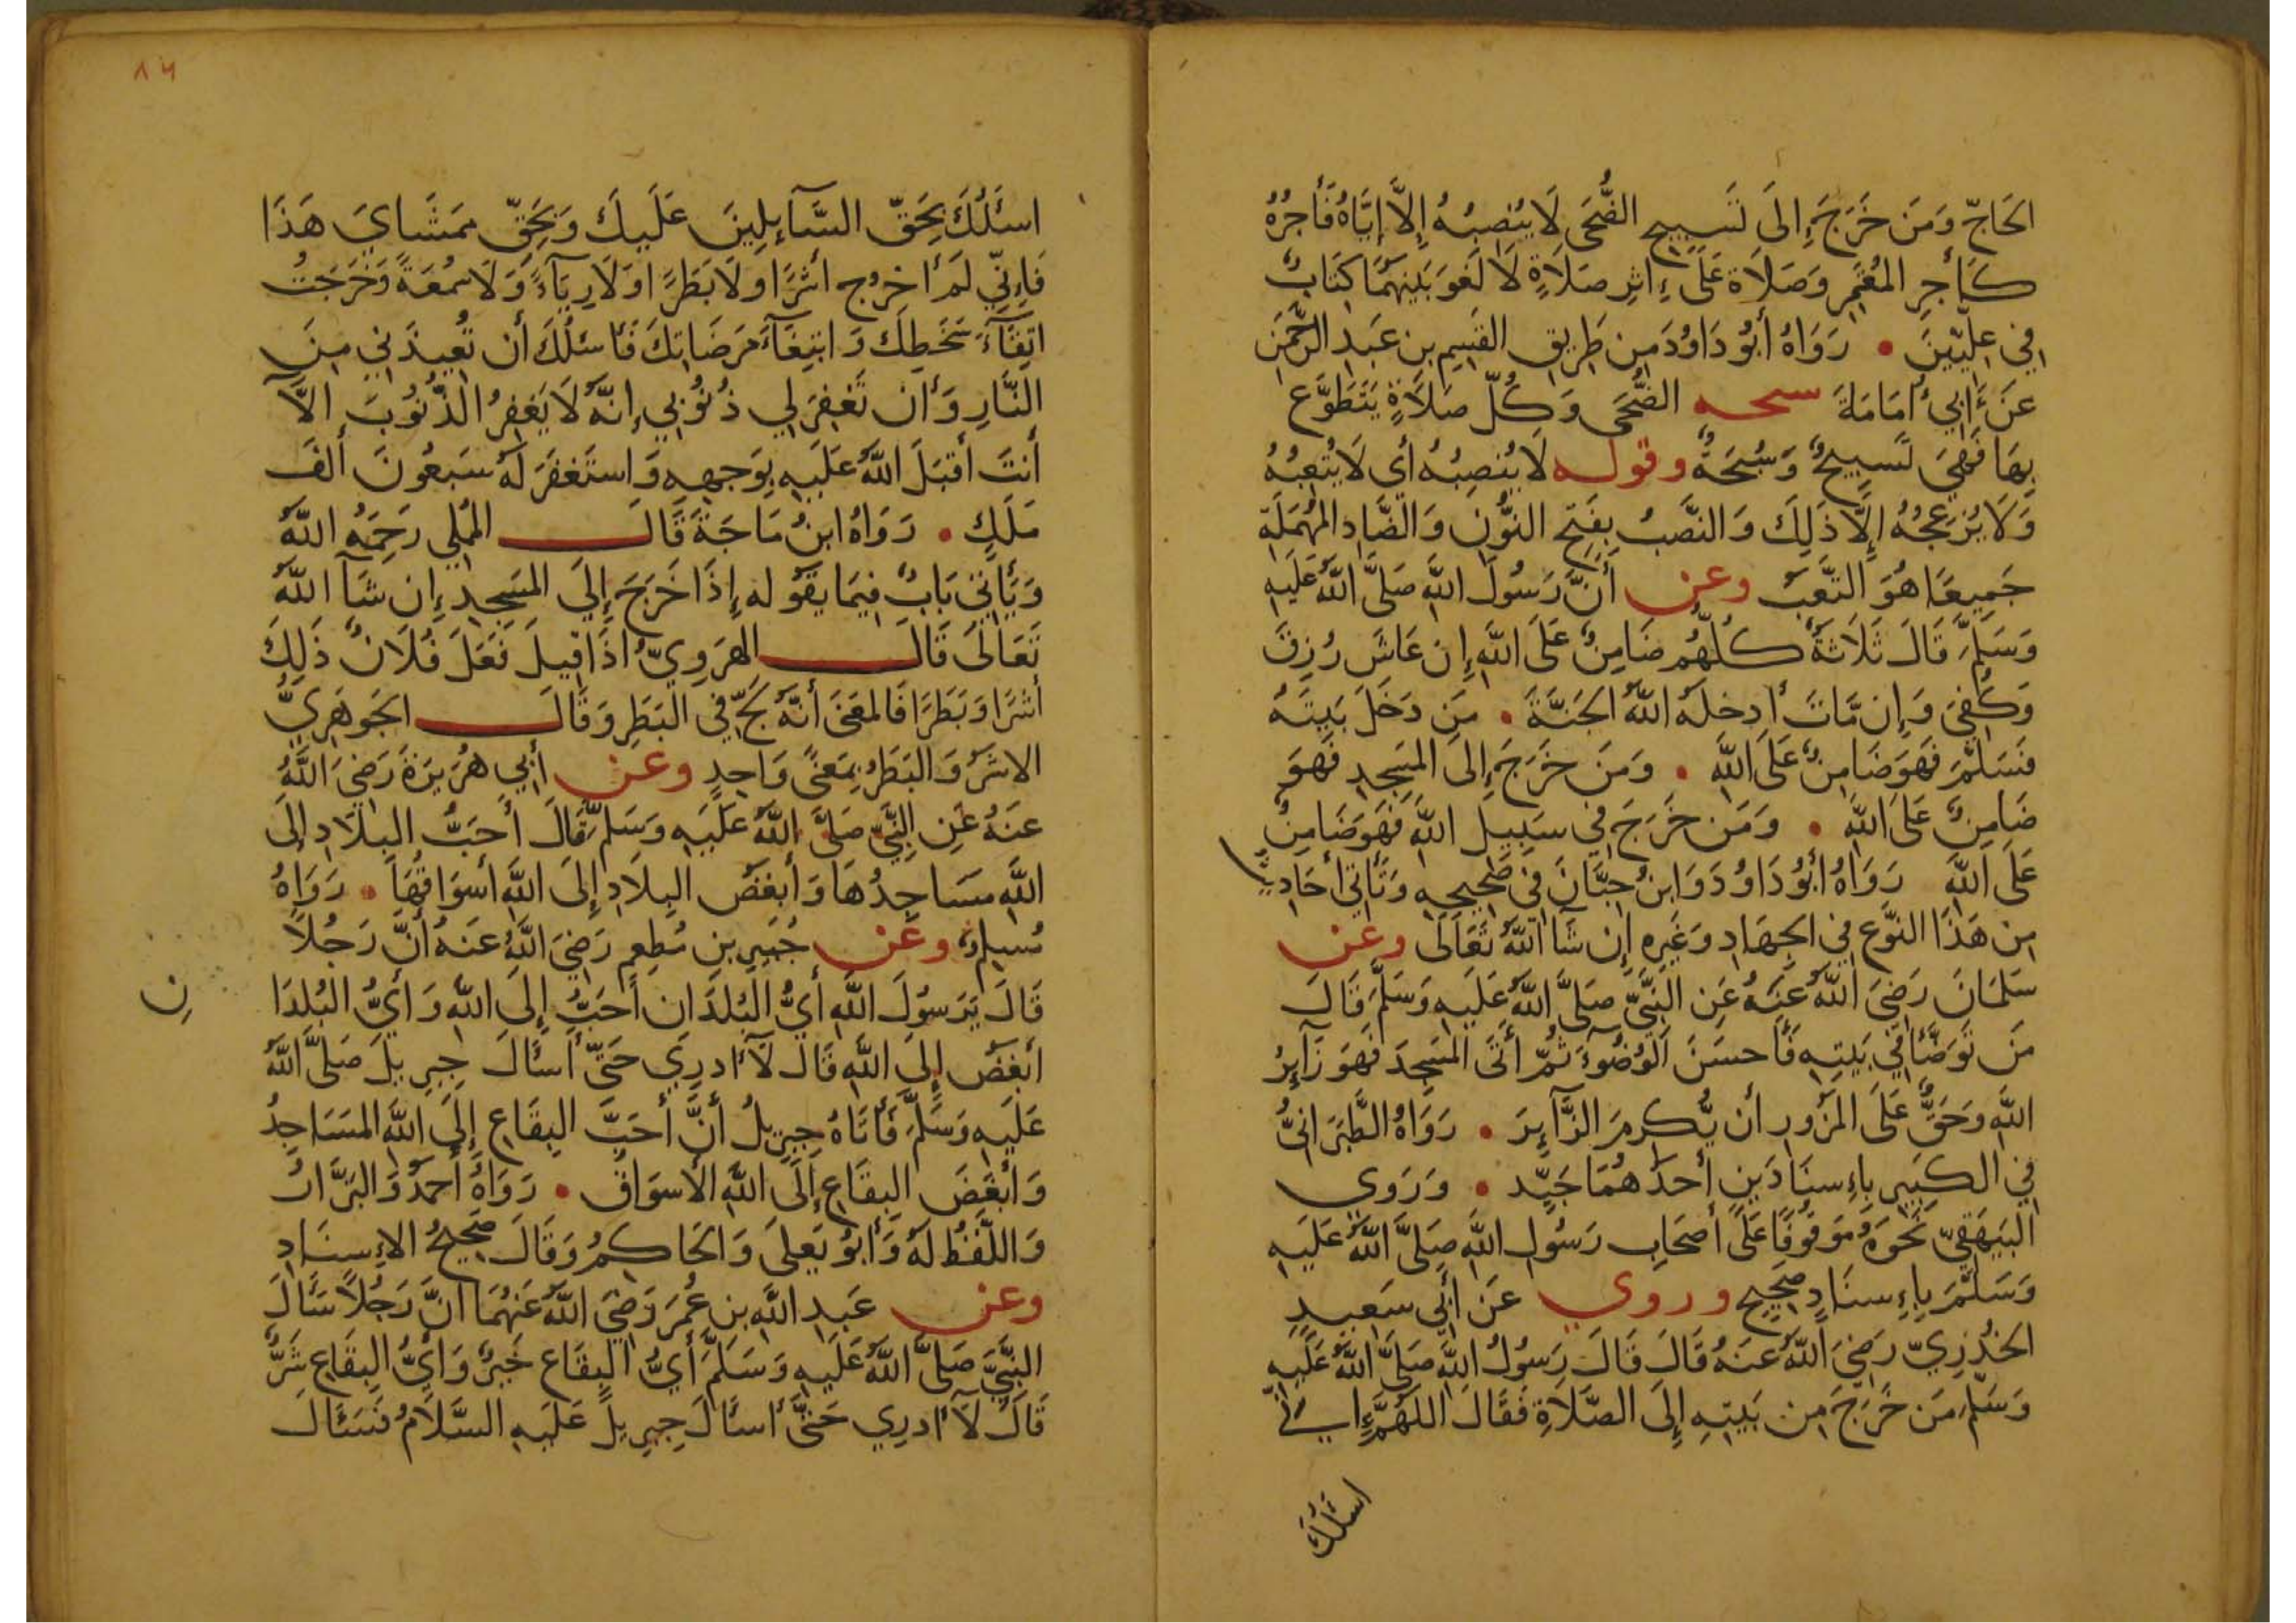 الحَاجّ وَمَن خَرَجَ إِلَى تَسبِيحِ الضُّحَى لَا يُنصِبُهُ إِلَّا إِيَّاهُ فَأَجرُهُ
كَأَجرِ المُعتَمِرِ وَصَلَاة عَلَى إِثرِ صَلَاةٍ لَا لَغوَ بَينَهُمَا كِتَابٌ
فِي عِلِّيِّينَ • رَوَاهُ أَبُو دَاوُدَ مِن طَرِيقِ القَسِمِ بنِ عَبدِ الرَّحمَنِ
عَن أَبِي أُمَامَةَ سبحه الضُّحَى وَكُلّ صَلَاةٍ يَتَطَوَّع
بِهَا فَهِيَ تَسبِيحٌ وَسُبحَةٌ وقوله لَا يُنصِبُهُ أَي لَا يُتعِبُهُ
وَلَا يُزعِجُهُ إِلَّا ذَلِكَ وَالنَّصَبُ بِفَتحِ النُّونِ وَالصَّادِ المُهمَلَةِ
جَمِيعًا هُوَ التَّعَبُ وعن أَنَّ رَسُولَ اللَّهِ صَلَّى اللَّهُ عَلَيهِ
وَسَلَّمَ قَالَ ثَلَاثَةٌ كُلُّهُم ضَامِنٌ عَلَى اللَّهِ إِن عَاشَ رُزِقَ
وَكُفِيَ وَإِن مَّاتَ أَدخَلَهُ اللَّهُ الجَنَّةَ • مَن دَخَلَ بَيتَهُ
فَسَلَّمَ فَهُوَ ضَامِنٌ عَلَى اللَّهِ • وَمَن خَرَجَ إِلَى المَسجِدِ فَهُوَ
ضَامِنٌ عَلَى اللَّهِ • وَمَن خَرَجَ فِي سَبِيلِ اللَّهِ فَهُوَ ضَامِنٌ
عَلَى اللَّهِ رَوَاهُ أَبُو دَاوُدَ وَابنُ حِبَّانَ فِي صَحِيحِهِ وَتَأتِي أَحَادِيثُ
مِن هَذَا النَّوعِ فِي الجِهَادِ وَغَيرِهِ إِن شَآ اللَّهُ تَعَالَى وعن
سَلمَانَ رَضِيَ اللَّهُ عَنهُ عَنِ النَّبِيِّ صَلَّى اللَّهُ عَلَيهِ وَسَلَّمَ قَالَ
مَن تَوَضَّأَ فِي بَيتِهِ فَأَحسَنَ الوُضُوءَ ثُمَّ أَتَى المَسجِدَ فَهُوَ زَآئِرُ
اللَّهِ وَحَقٌّ عَلَى المَزُورِ أَن يُكرِمَ الزَّآئِرَ • رَوَاهُ الطَّبَرَانِيُّ
فِي الكَبِيرِ بِإِسنَادَينِ أَحَدُهُمَا جَيِّد • وَرَوى
البَيهَقِيّ نَحوَهُ مَوقُوفًا عَلَى أَصحَابِ رَسُولِ اللَّهِ صَلَّى اللَّهُ عَلَيهِ
وَسَلَّمَ بِإِسنَادٍ صَحِيحٍ وروي عَن أَبِي سَعِيدٍ
الخُدرِيّ رَضِيَ اللَّهُ عَنهُ قَالَ قَالَ رَسُولُ اللَّهِ صَلَّى اللَّهُ عَلَيهِ
وَسَلَّمَ مَن خَرَجَ مِن بَيتِهِ إِلَى الصَّلَاةِ فَقَالَ اللَّهُمَّ إِنِّي
اسئلك
٨٦
اسئَلُكَ بِحَقّ السَّآئِلِينَ عَلَيكَ وَبِحَقّ مَمشَايَ هَذَا
فَإِنِّي لَم أَخرُج أَشَرًا وَلَا بَطَرًا وَلَا رِيَآءً وَلَا سُمعَةً وَخَرَجتُ
اتِقَآءَ سَخَطِكَ وَابتِغَآءَ مَرضَاتِكَ فَأَسئَلُكَ أَن تُعِيذَنِي مِنَ
النَّارِ وَأَن تَغفِرَ لِي ذُنُوبِي إِنَّهُ لَا يَغفِرُ الذُّنُوبَ إلَّا
أَنتَ أَقبَلَ اللَّهُ عَلَيهِ بِوَجهِهِ وَاستَغفَرَ لَهُ سَبعُونَ أَلفَ
مَلَكٍ • رَوَاهُ ابنُ مَاجَةَ قَالَ المُملِي رَحِمَهُ اللَّهُ
وَيَأتِي بَابٌ فِيمَا يَقُوله إِذَا خَرَجَ إِلَى المَسجِدِ إِن شَآ اللَّهُ
تَعَالَى قَالَ الهَرَوِيُّ إذَا قِيلَ فَعَلَ فُلَانٌ ذَلِكَ
أَشَرًا وَبَطَرًا فَالمَعنَى أَنَّهُ لَجَّ فِي البَطَرِ وَقَالَ الجَوهَرِيُّ
الاشَرُ وَالبَطَرُ بِمَعنًى وَاحِدٍ وعن أَبِي هُرَيرَةَ رَضِيَ اللَّهُ
عَنهُ عَنِ النَّبِيِّ صَلَّى اللَّهُ عَلَيهِ وَسَلَّمَ قَالَ أَحَبُّ البِلَادِ إِلَى
اللَّهِ مَسَاجِدُهَا وَأَبغَضُ البِلَادِ إِلَى اللَّهِ أَسوَاقُهَا • رَوَاهُ
مُسلِمٌ وعن جُبَيرِ بنِ مُطعِمٍ رَضِيَ اللَّهُ عَنهُ أَنَّ رَجُلًا
قَالَ يَرَسُولَ اللَّهِ أَيُّ البُلدَانِ أَحَبُّ إِلَى اللَّهِ وَأَيُّ البُلدَا
ن
أَبغَضُ إِلَى اللَّهِ قَالَ لَآ أَدرِي حَتَّى أَسئَلَ جِبرِيلَ صَلَّى اللَّهُ
عَلَيهِ وَسَلَّمَ فَأَتَاهُ جِبرِيلُ أَنَّ أَحَبَّ البِقَاعِ إِلَى اللَّهِ المَسَاجِدُ
وَأَبغَضَ البِقَاعِ إِلَى اللَّهِ الأَسوَاقُ • رَوَاهُ أَحمَدُ وَالبَزَّارُ
وَاللَّفظُ لَهُ وَأَبُو يَعلَى وَالحَاكِمُ وَقَالَ صَحِيحُ الإِسنَادِ
وعن عَبدِ اللَّهِ بنِ عُمَرَ رَضِيَ اللَّهُ عَنهُمَا أَنَّ رَجُلًا سَأَلَ
النَّبِيَّ صَلَّى اللَّهُ عَلَيهِ وَسَلَّمَ أَيُّ البِقَاعِ خَيرٌ وَأَيُّ البِقَاعِ شَرٌّ
قَالَ لَآ أَدرِي حَتَّى أَسئَلَ جِبرِيلَ عَلَيهِ السَّلَامُ فَسَئَالَ